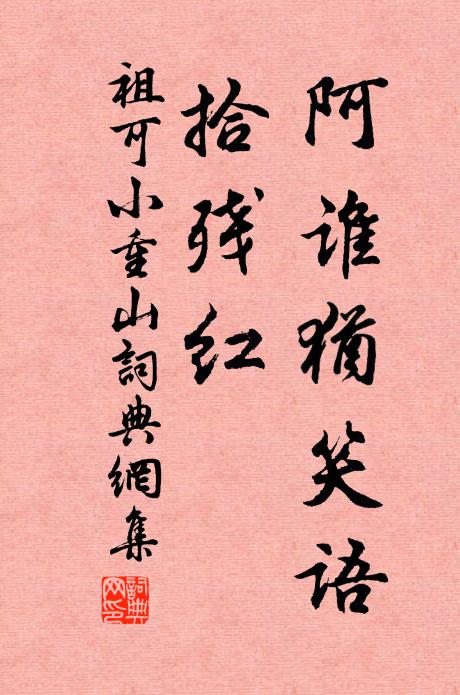 阿谁犹笑语
拾残红
祖可小重山詞典網集
詞典网印